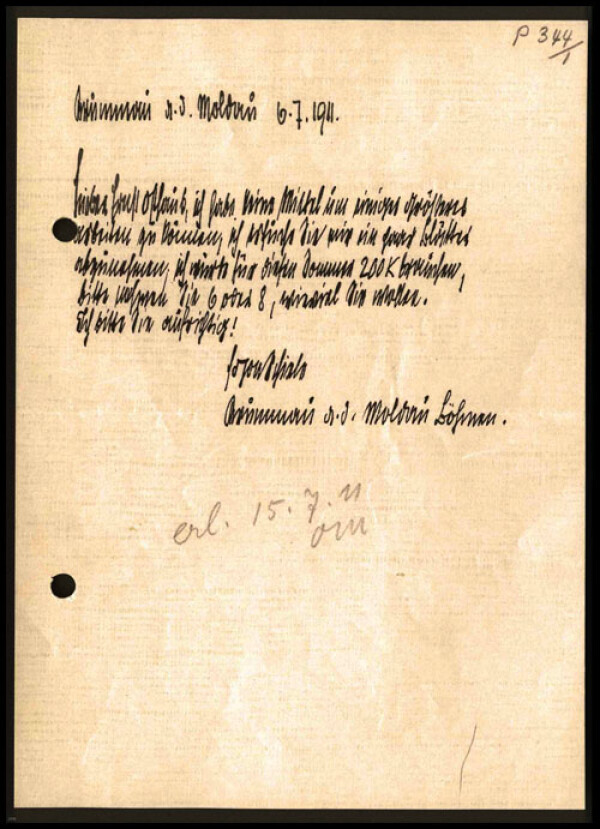 P 344/1
Krummau a. d. Moldau 6.7.1911.
Lieber Ernst Osthaus, ich habe keine Mittel um einiges Grösseres
arbeiten zu können, ich ersuche Sie mir ein paar Blätter
abzunehmen, ich würde für diesen Sommer 200 K brauchen,
bitte nehmen Sie 6 oder 8, wieviel Sie wollen.
Ich bitte Sie aufrichtig!
Egon Schiele
Krummau a. d. Moldau Böhmen.
erl. 15.7.11